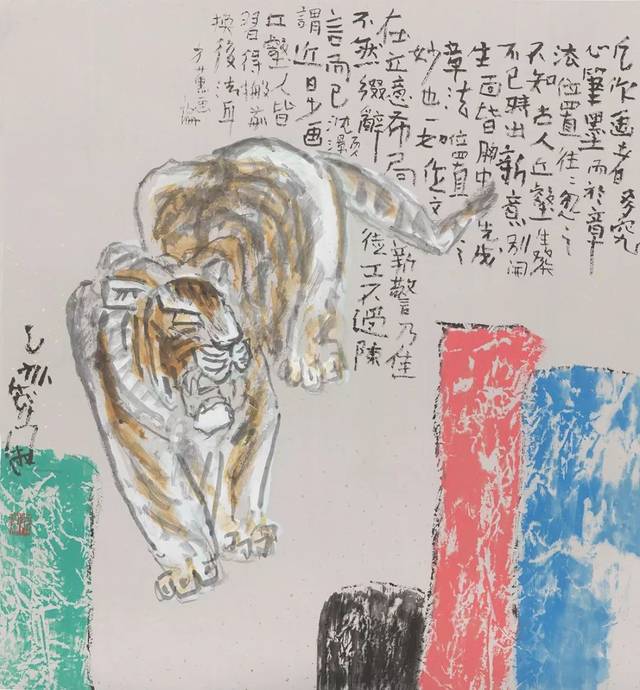 凡作画者多究
心筆墨而於章
法位置往忽之
不知古人丘壑生發
不已時出新意別開
生面皆胸中先成
章法位置之
妙也一如作文
在立意布局新警乃佳
不然綴辭徒工不過陳
言而已沈灝
謂近日少画
丘壑人皆
習得搬前
換後法耳
方薰画論